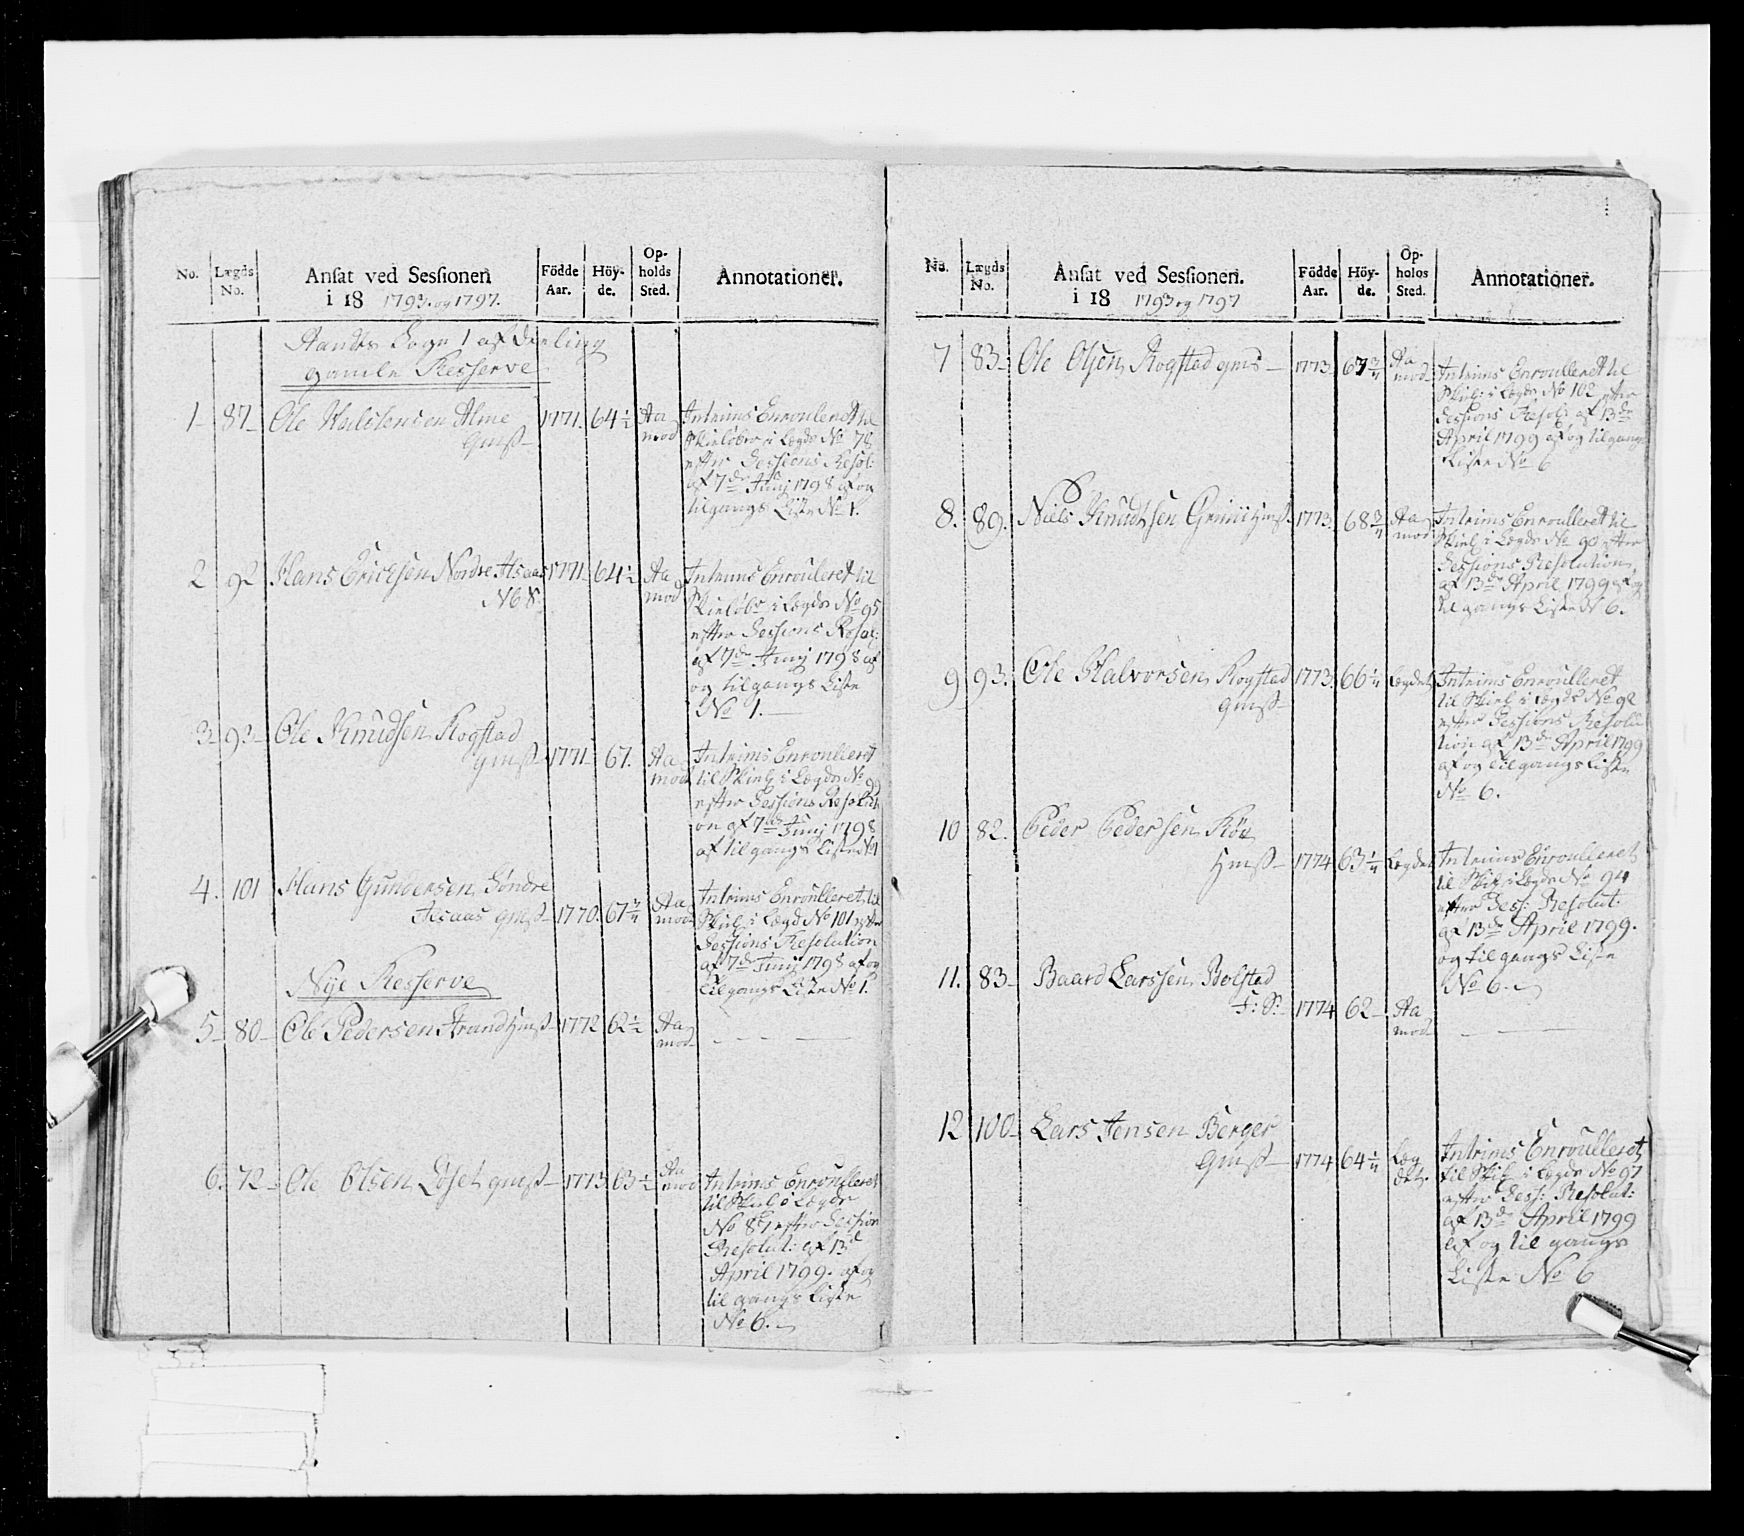 No. Lægds No. Ansat ved Sessionen i 18 1793. og 1797. Födde Aar. Höyde. Opholds Sted. Annotationer.
Sogn 1 afdeeling
gamle Resserve
1- 87- Ole Alme 1771. 64½ Aa Intrims Enrouleret til
Gmß- mod Skieløber i Lægds No 78
efter Sessions Resol:
af 7de Junj 1798 af og
tilgangs Liste No 1.
2 92 Hans Ericksen Nordre Asaas 1771- 64½ Aa Intrims Enrouleret til
N6S. mod Skieløbr i Lægds No 95
efter Sessions Resol:
af 7de Junj 1798 af
og tilgangs Liste
No 1.
3- 93- Ole Knudsen Rogstad
gmß- 1771- 67. Aa Intrims Enroulleret
mod til Skiel: i Lægds No 99
efter Sessions Resoluti
on af 7de Junj 1798
af tilgangs Liste No 1
4. 101 Hans Gundersen Söndre
Asaas gmß- 1770. 67¾ Aa Intrims Enroulleret til
mod Skiel: i Lægd No 101 efter
Sessions Resolution
af 7de Junj 1798 af og
tilgangs Liste No 1.
Nÿe Resserve
5- 80- Ole Pedersen Strand Hmß- 1772 62½ Aa
mod-
6. 72- Ole Olsen Löset gmß- 1773 63½ Aa Intrims Enroulleret
mod til Skiel i Lægds
No 87 efter Session
Resolut: af 13d
April 1799. af og
til gangs Liste
No 6.
No. Lægds No. Ansat ved Sessionen. i 18 1793 og 1797 Födde Aar. Höyde. Opholds Sted. Annotationer.
7 83- Ole Olsen Rogstad gms- 1773. 67¾ Aa
mod- Intrims Enroulleret til
Skiel: i Lægds No 102 efter
Sessions Resol: af 13de
April 1799 af og tilgangs
Liste No 6
8. 89. Niels Knudtsen Hmß. 1773. 68¾ Aa Intrims Enroulleret til
mod Skiel: i Lægds No 90 efter
Sessions Resolution
af 13de April 1799 af og
til gangs Liste N 6.
9 93. Ole Halvorsen Rogstad 1773. 66¼ Lægdet Intrims Enroulleret
gmß- til Skiel: i Lægds No 92
efter Sessions Resolu
tion af 13de April 1799
af og tilgangs Liste
No 6.
10 82. Peder Pedersen Röe
Hmß- 1774 63¼ Lægdet Intrims Enroulleret
til Skiel i Lægds No 94
efter Sess: Resolut:
af 13de April 1799.
og tilgangs Liste
No 6.
11. 83- Baard Larssen Bolstad
F: S:- 1774 62- Aa
mod
12 100- Lars Jensen Berger
Gmß- 1774 64¼ Læg Intrims Enroulleret
det. til Skiel: i Lægds No 97
efter Sess: Resolut:
af 13de April 1799
af og til gangs
Liste No 6